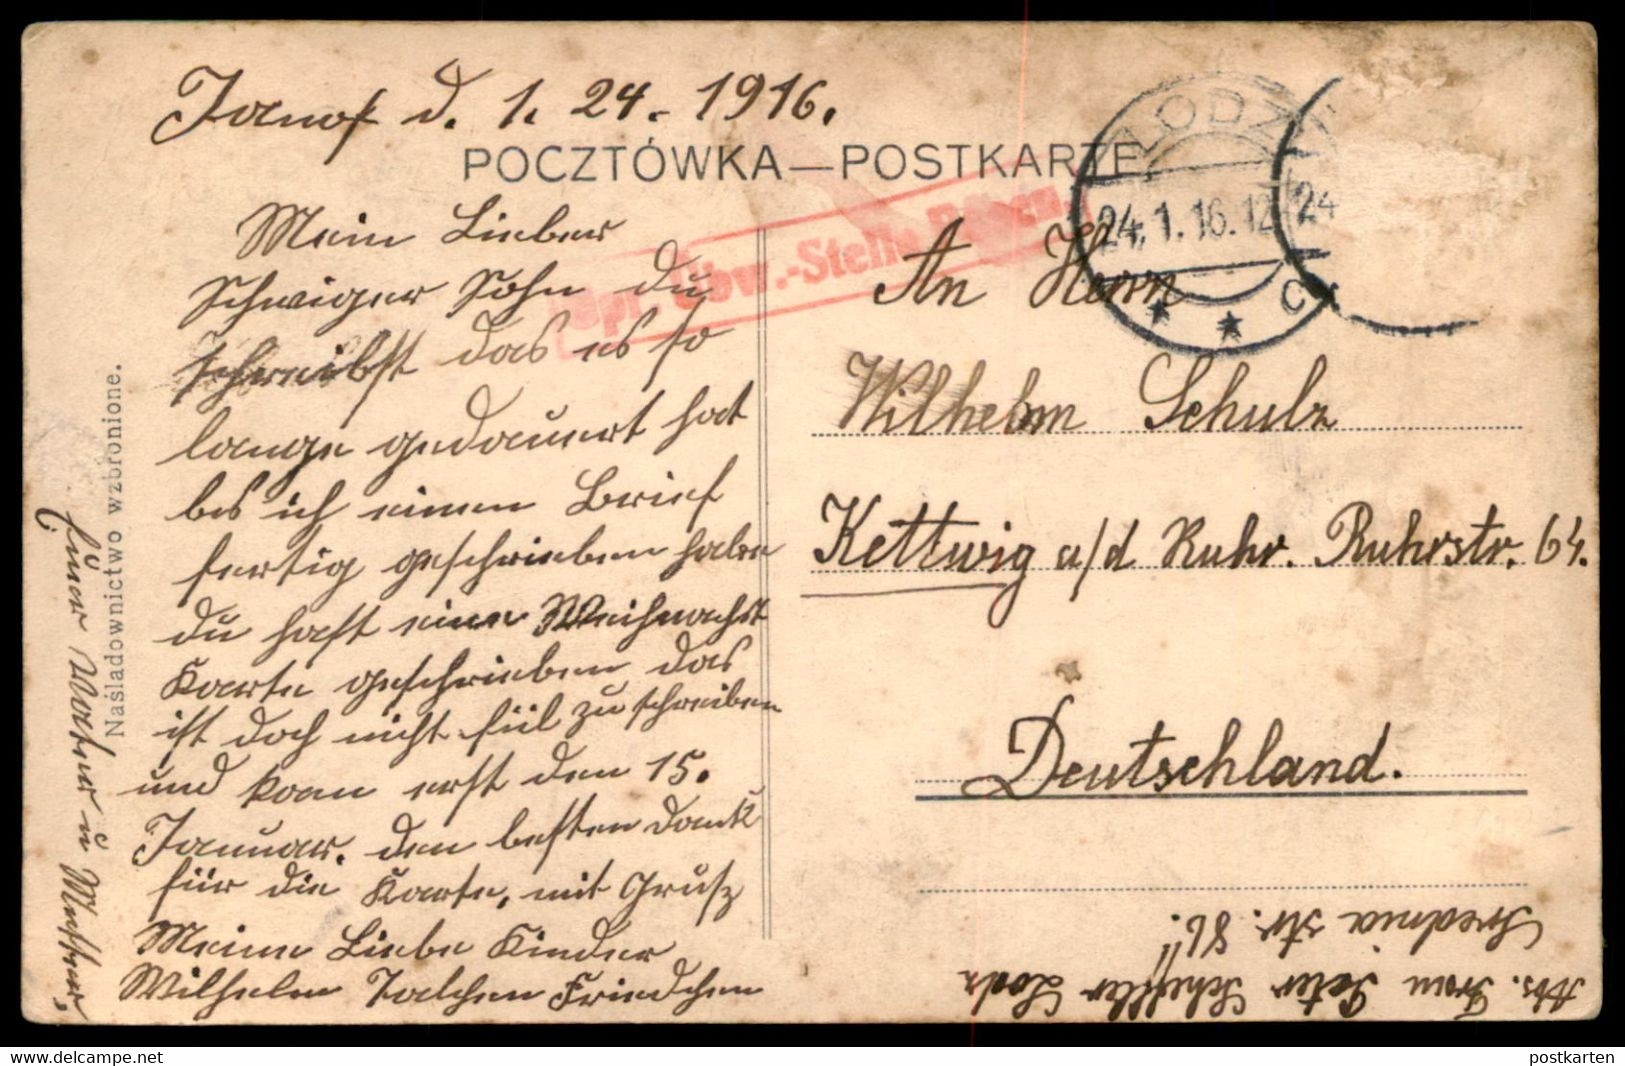 d. 1. 24. 1916.
POCZTÓWKA—POSTKARTE
Mein Lieber
Schwiger Sohn du
schreibst das es so
lange gedauert hat
bes ich einen Brief
fertig geschrieben habe
du hast eine Weihnachst
Karte geschrieben das
ist doch nicht fiil zu schreiben
und kam erst den 15.
Januar. den besten Dank
für die Karte, mit Grusz
Meine Liebe Kinder
Wilhelm Talchen Friedchen
Euer Vater u Mutter,
Naśladownictwo wzbronione.
Üb.w.-Stelle
LODZ
24.1.16.12
24
C
An Herrn
Wilhelm Schulz
Kettwig a/d Ruhr. Ruhrstr. 64.
Deutschland.
Abs. Frau Peter Scheffler Lodz
Srednia str. 86.
postkarten